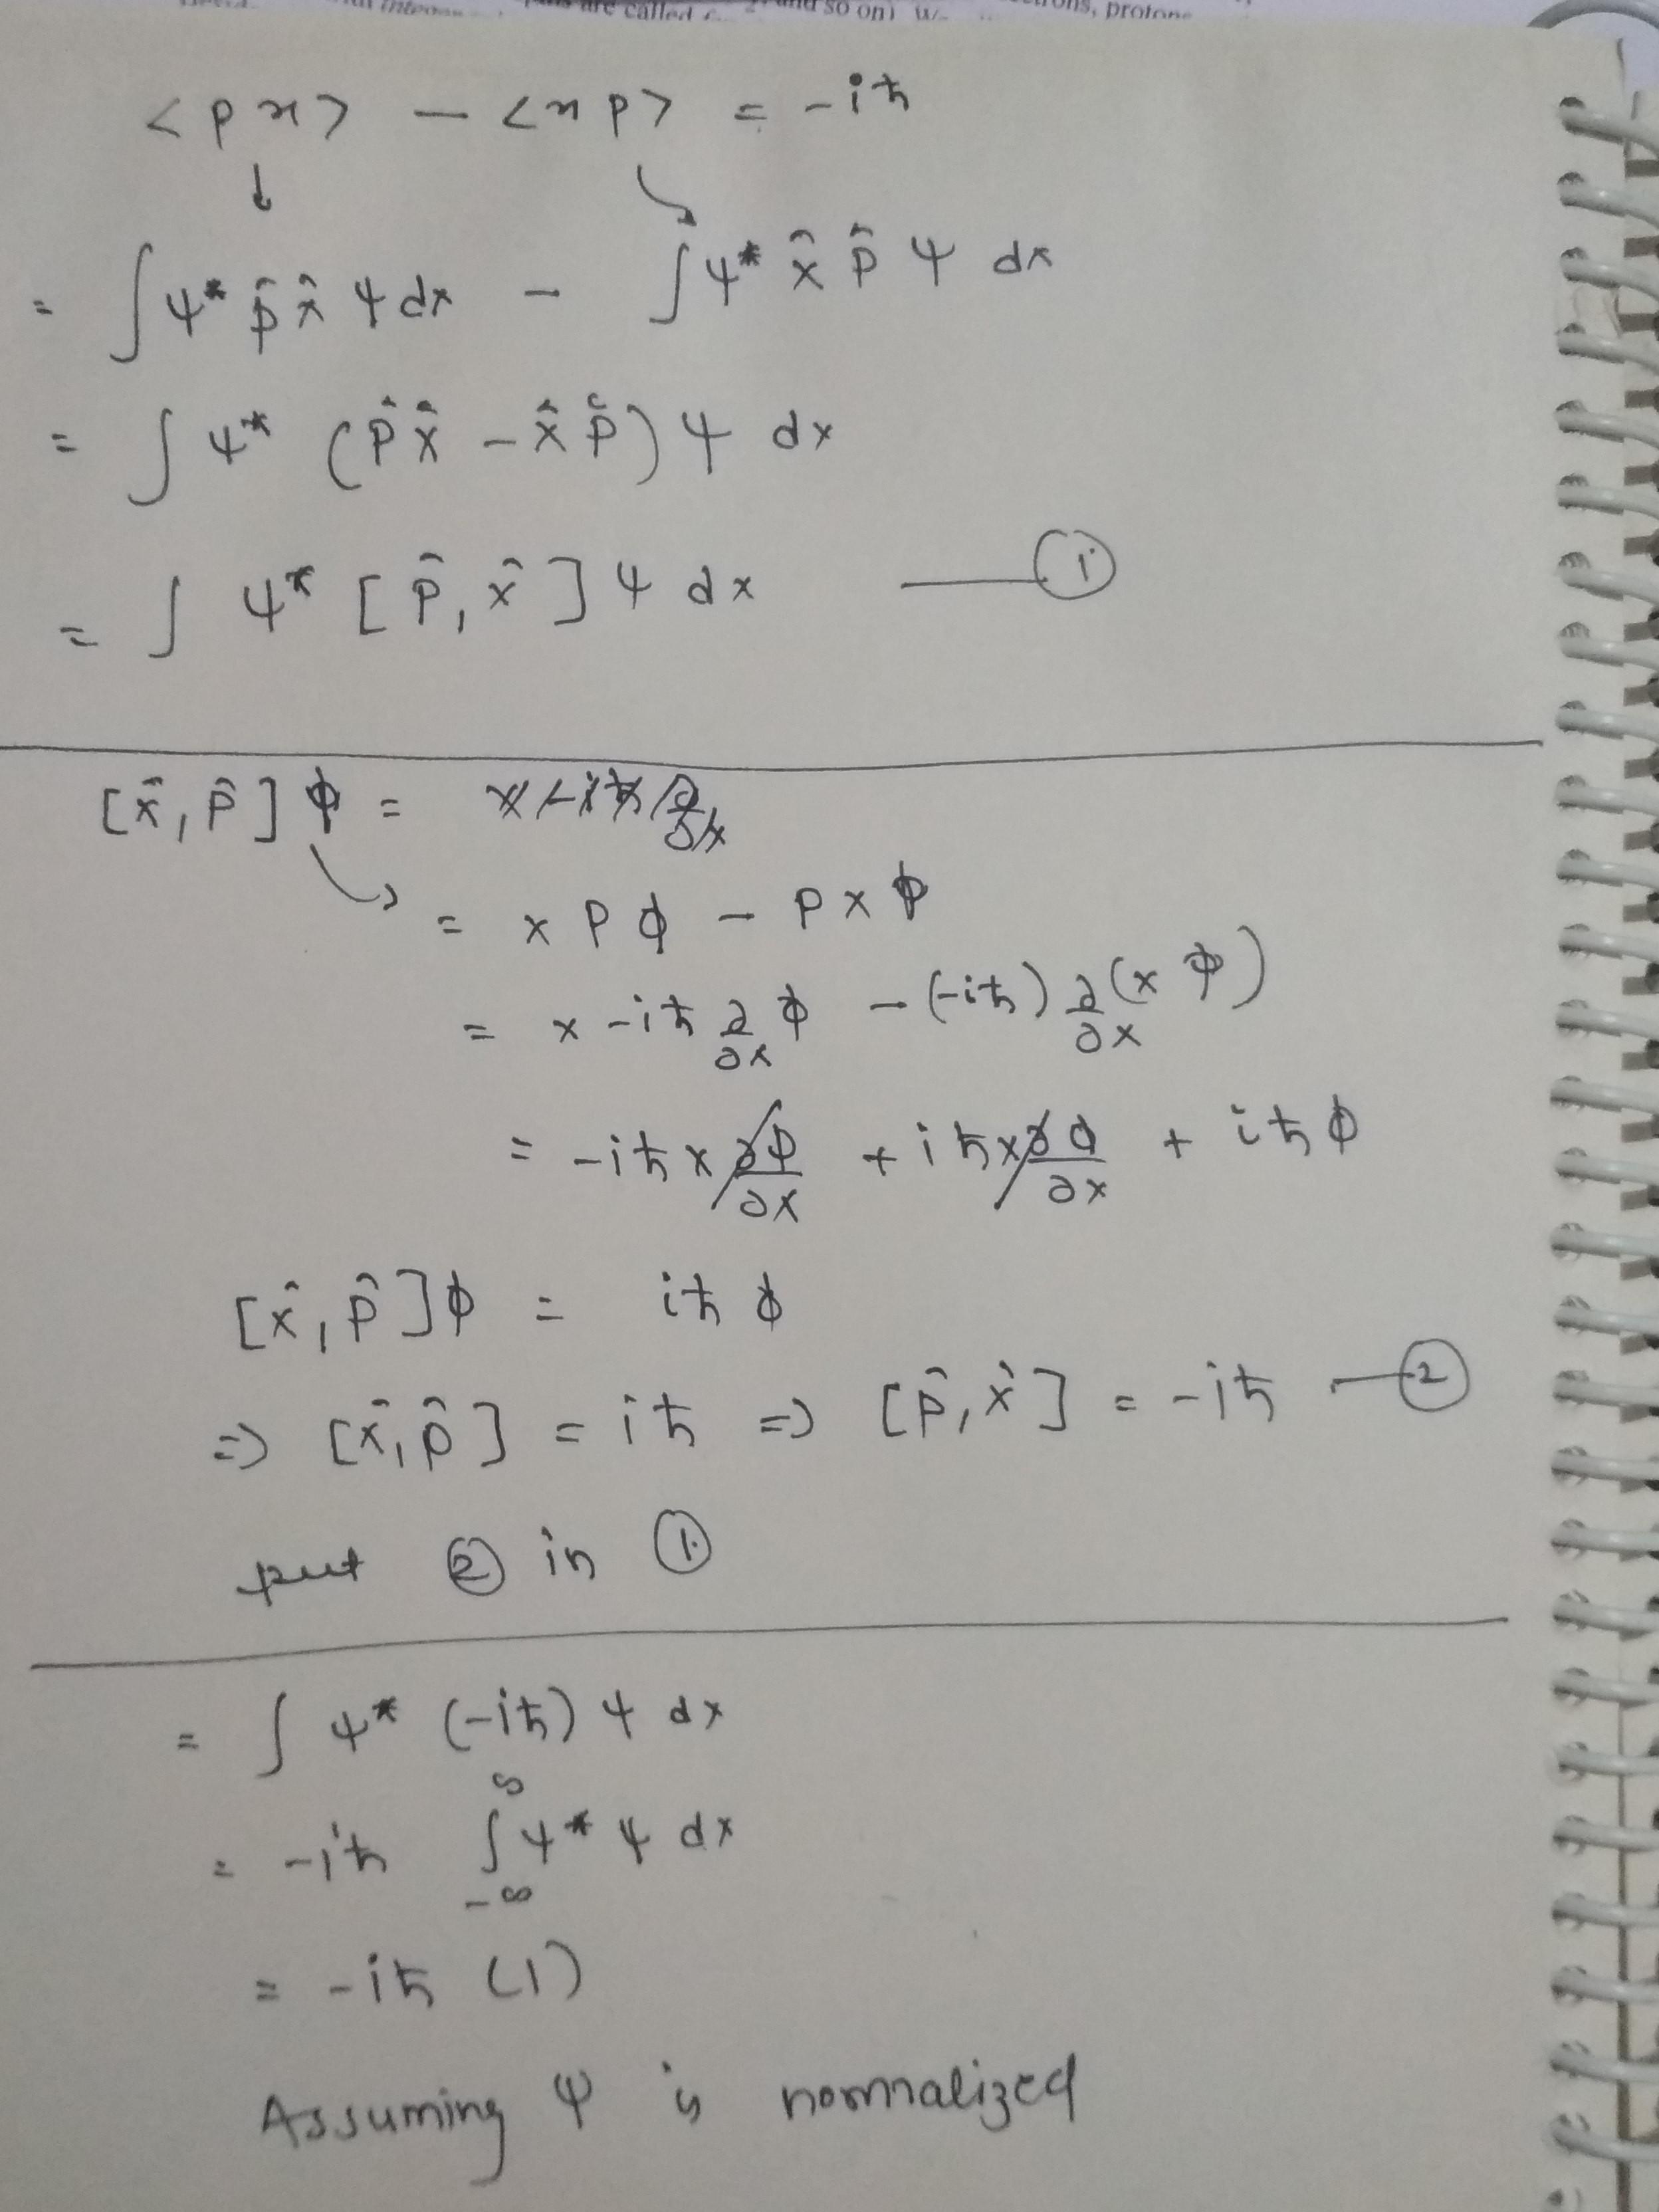 are called
and so on)
protons
< p x > – < x p > = -iħ
↓ ↘
= ∫ ψ* p̂ x̂ ψ dx – ∫ ψ* x̂ p̂ ψ dx
= ∫ ψ* (p̂ x̂ – x̂ p̂) ψ dx
= ∫ ψ* [p̂, x̂] ψ dx —— ①
[x̂, p̂] ϕ =
↘ = x p ϕ – p x ϕ
= x -iħ ∂/∂x ϕ – (-iħ) ∂/∂x (x ϕ)
= -iħ x ∂ϕ/∂x + iħ x ∂ϕ/∂x + iħ ϕ
[x̂, p̂] ϕ = iħ ϕ
⇒ [x̂, p̂] = iħ ⇒ [p̂, x̂] = -iħ — ②
put ② in ①
= ∫ ψ* (-iħ) ψ dx
= -iħ ∫_{-∞}^{∞} ψ* ψ dx
= -iħ (1)
Assuming ψ is normalized